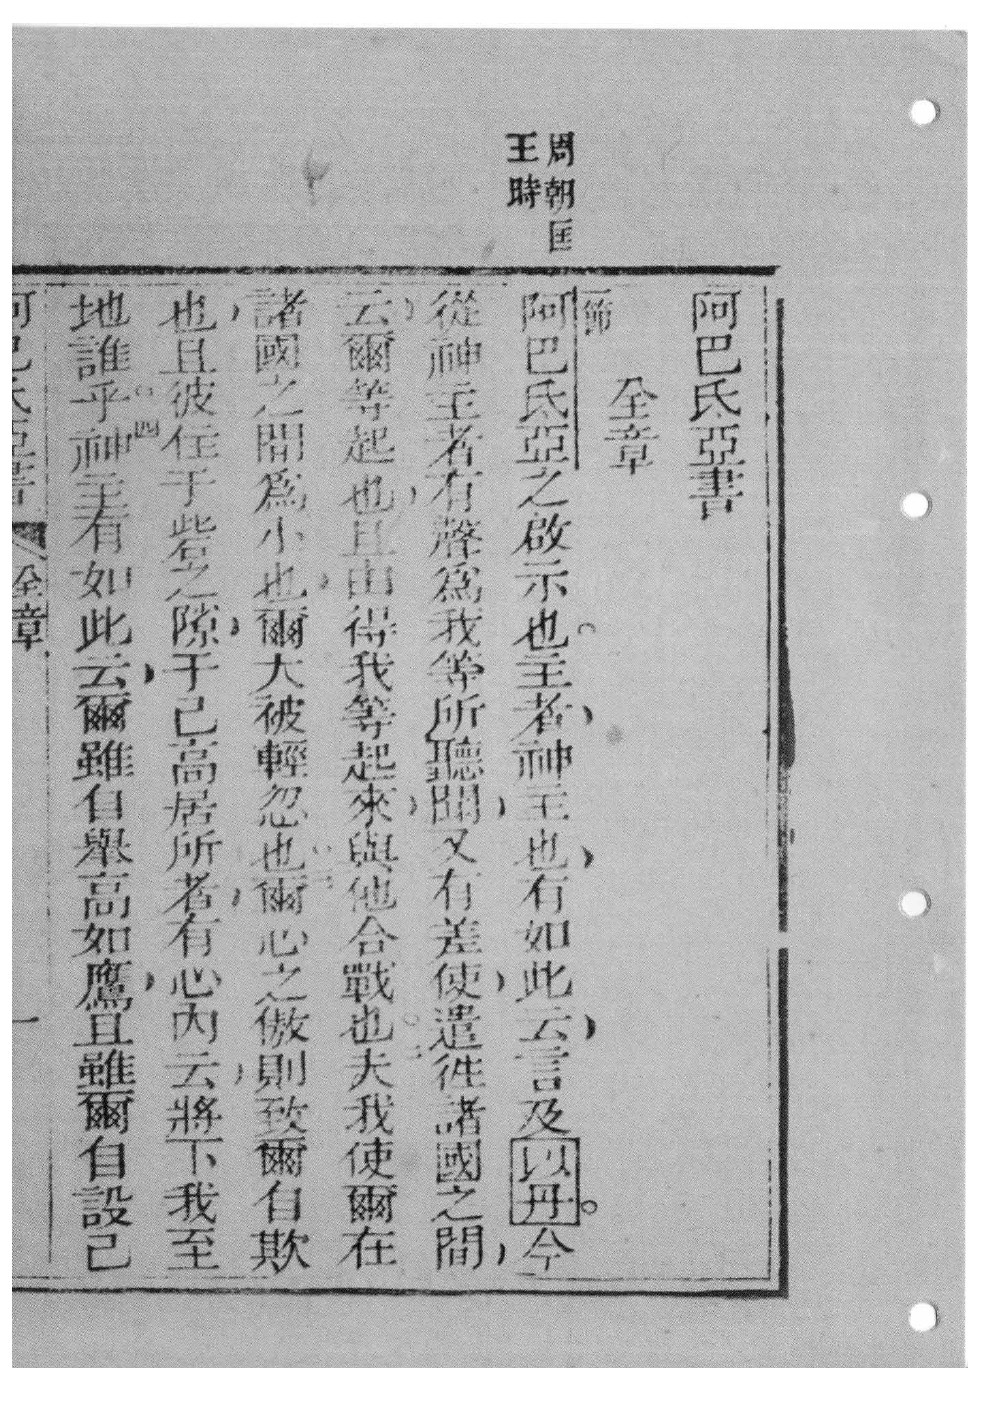 周朝匡
王時
阿巴氐亞書
全章
一節
阿巴氐亞之啟示也。主者神主也有如此云言及以丹。今
從神主者有聲為我等所聽聞又有差使遣徃諸國之間
云爾等起也且由得我等起來與他合戰也。二夫我使爾在
諸國之間為小也爾大被輕忽也。三爾心之傲則致爾自欺
也且彼住于磐之隙于己高居所者有心內云將下我至
地誰乎。四神主有如此云爾雖自舉高如鷹且雖爾自設己
阿巴氐亞書 全章 一